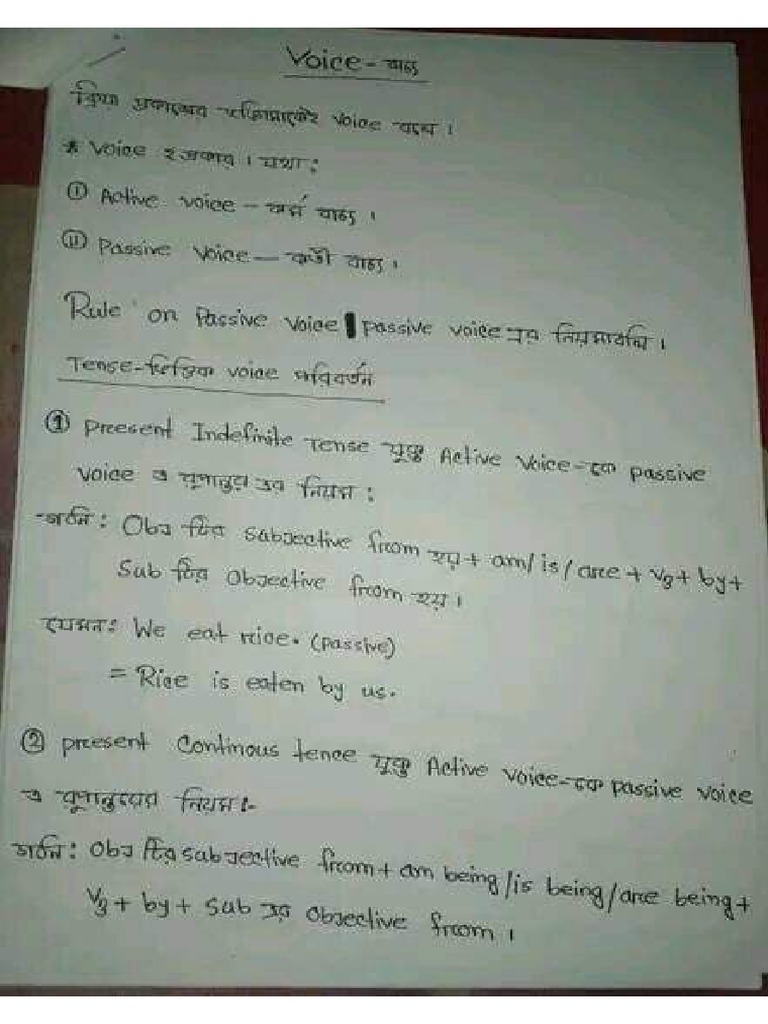 Voice - বাচ্য
ক্রিয়া প্রকাশের ভঙ্গিমাকেই voice বলে ।
* Voice ২ প্রকার । যথা :
(i) Active voice - কর্ম বাচ্য ।
(ii) Passive Voice — কর্তৃ বাচ্য ।
Rule on Passive Voice passive voice এর নিয়মাবলি ।
Tense-ভিত্তিক voice পরিবর্তন
(1) Present Indefinite Tense যুক্ত Active Voice-কে passive
voice এ রূপান্তর এর নিয়ম :
গঠন : Obj টির subjective from হয় + am/is/are + V3 + by +
Sub টির Objective from হয় ।
যেমন : We eat rice. (passive)
= Rice is eaten by us.
(2) Present Continous tence যুক্ত Active voice-কে passive voice
এ রূপান্তরের নিয়ম :-
গঠন : Obj টির subjective from + am being/is being/are being +
V3 + by + Sub এর Objective from ।